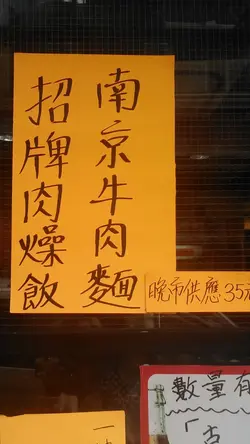 南京牛肉麵
招牌肉燥飯
晚市供應35元
數量有
「古
一